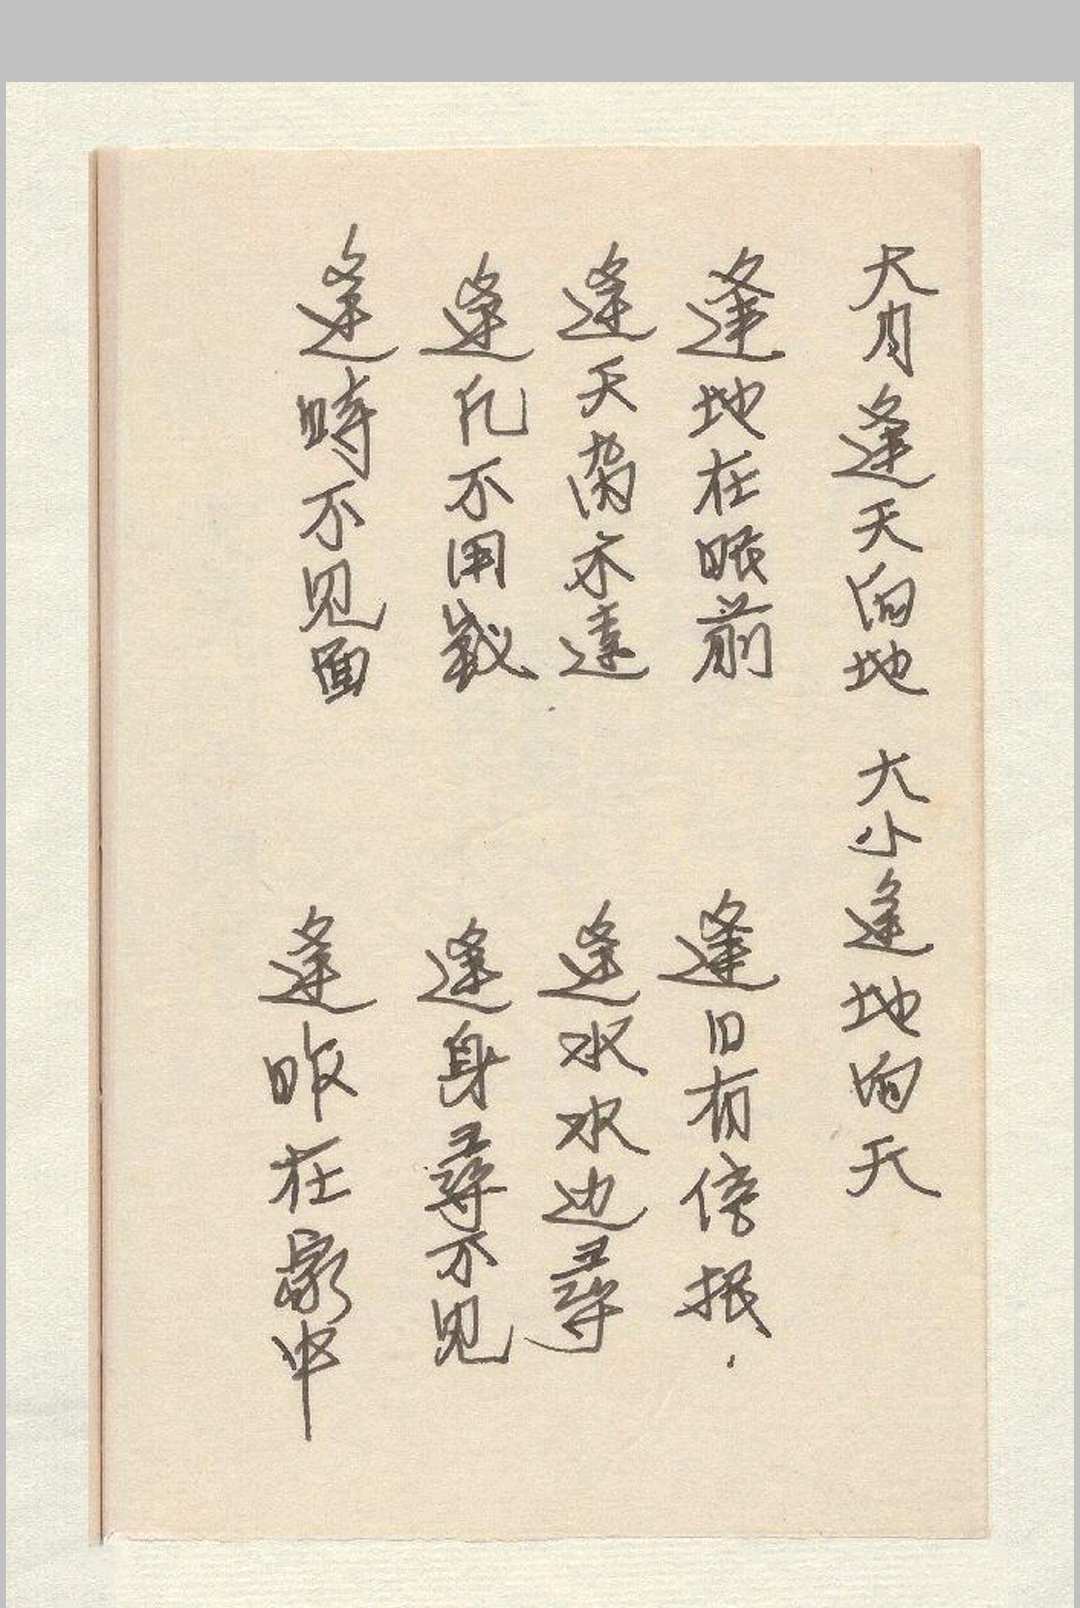 大月逢天向地 大小逢地向天
逢地在眼前
逢日有信报.
逢天离不远
逢水水边尋
逢几不用
逢身尋不见
逢時不见面
逢昨在家中